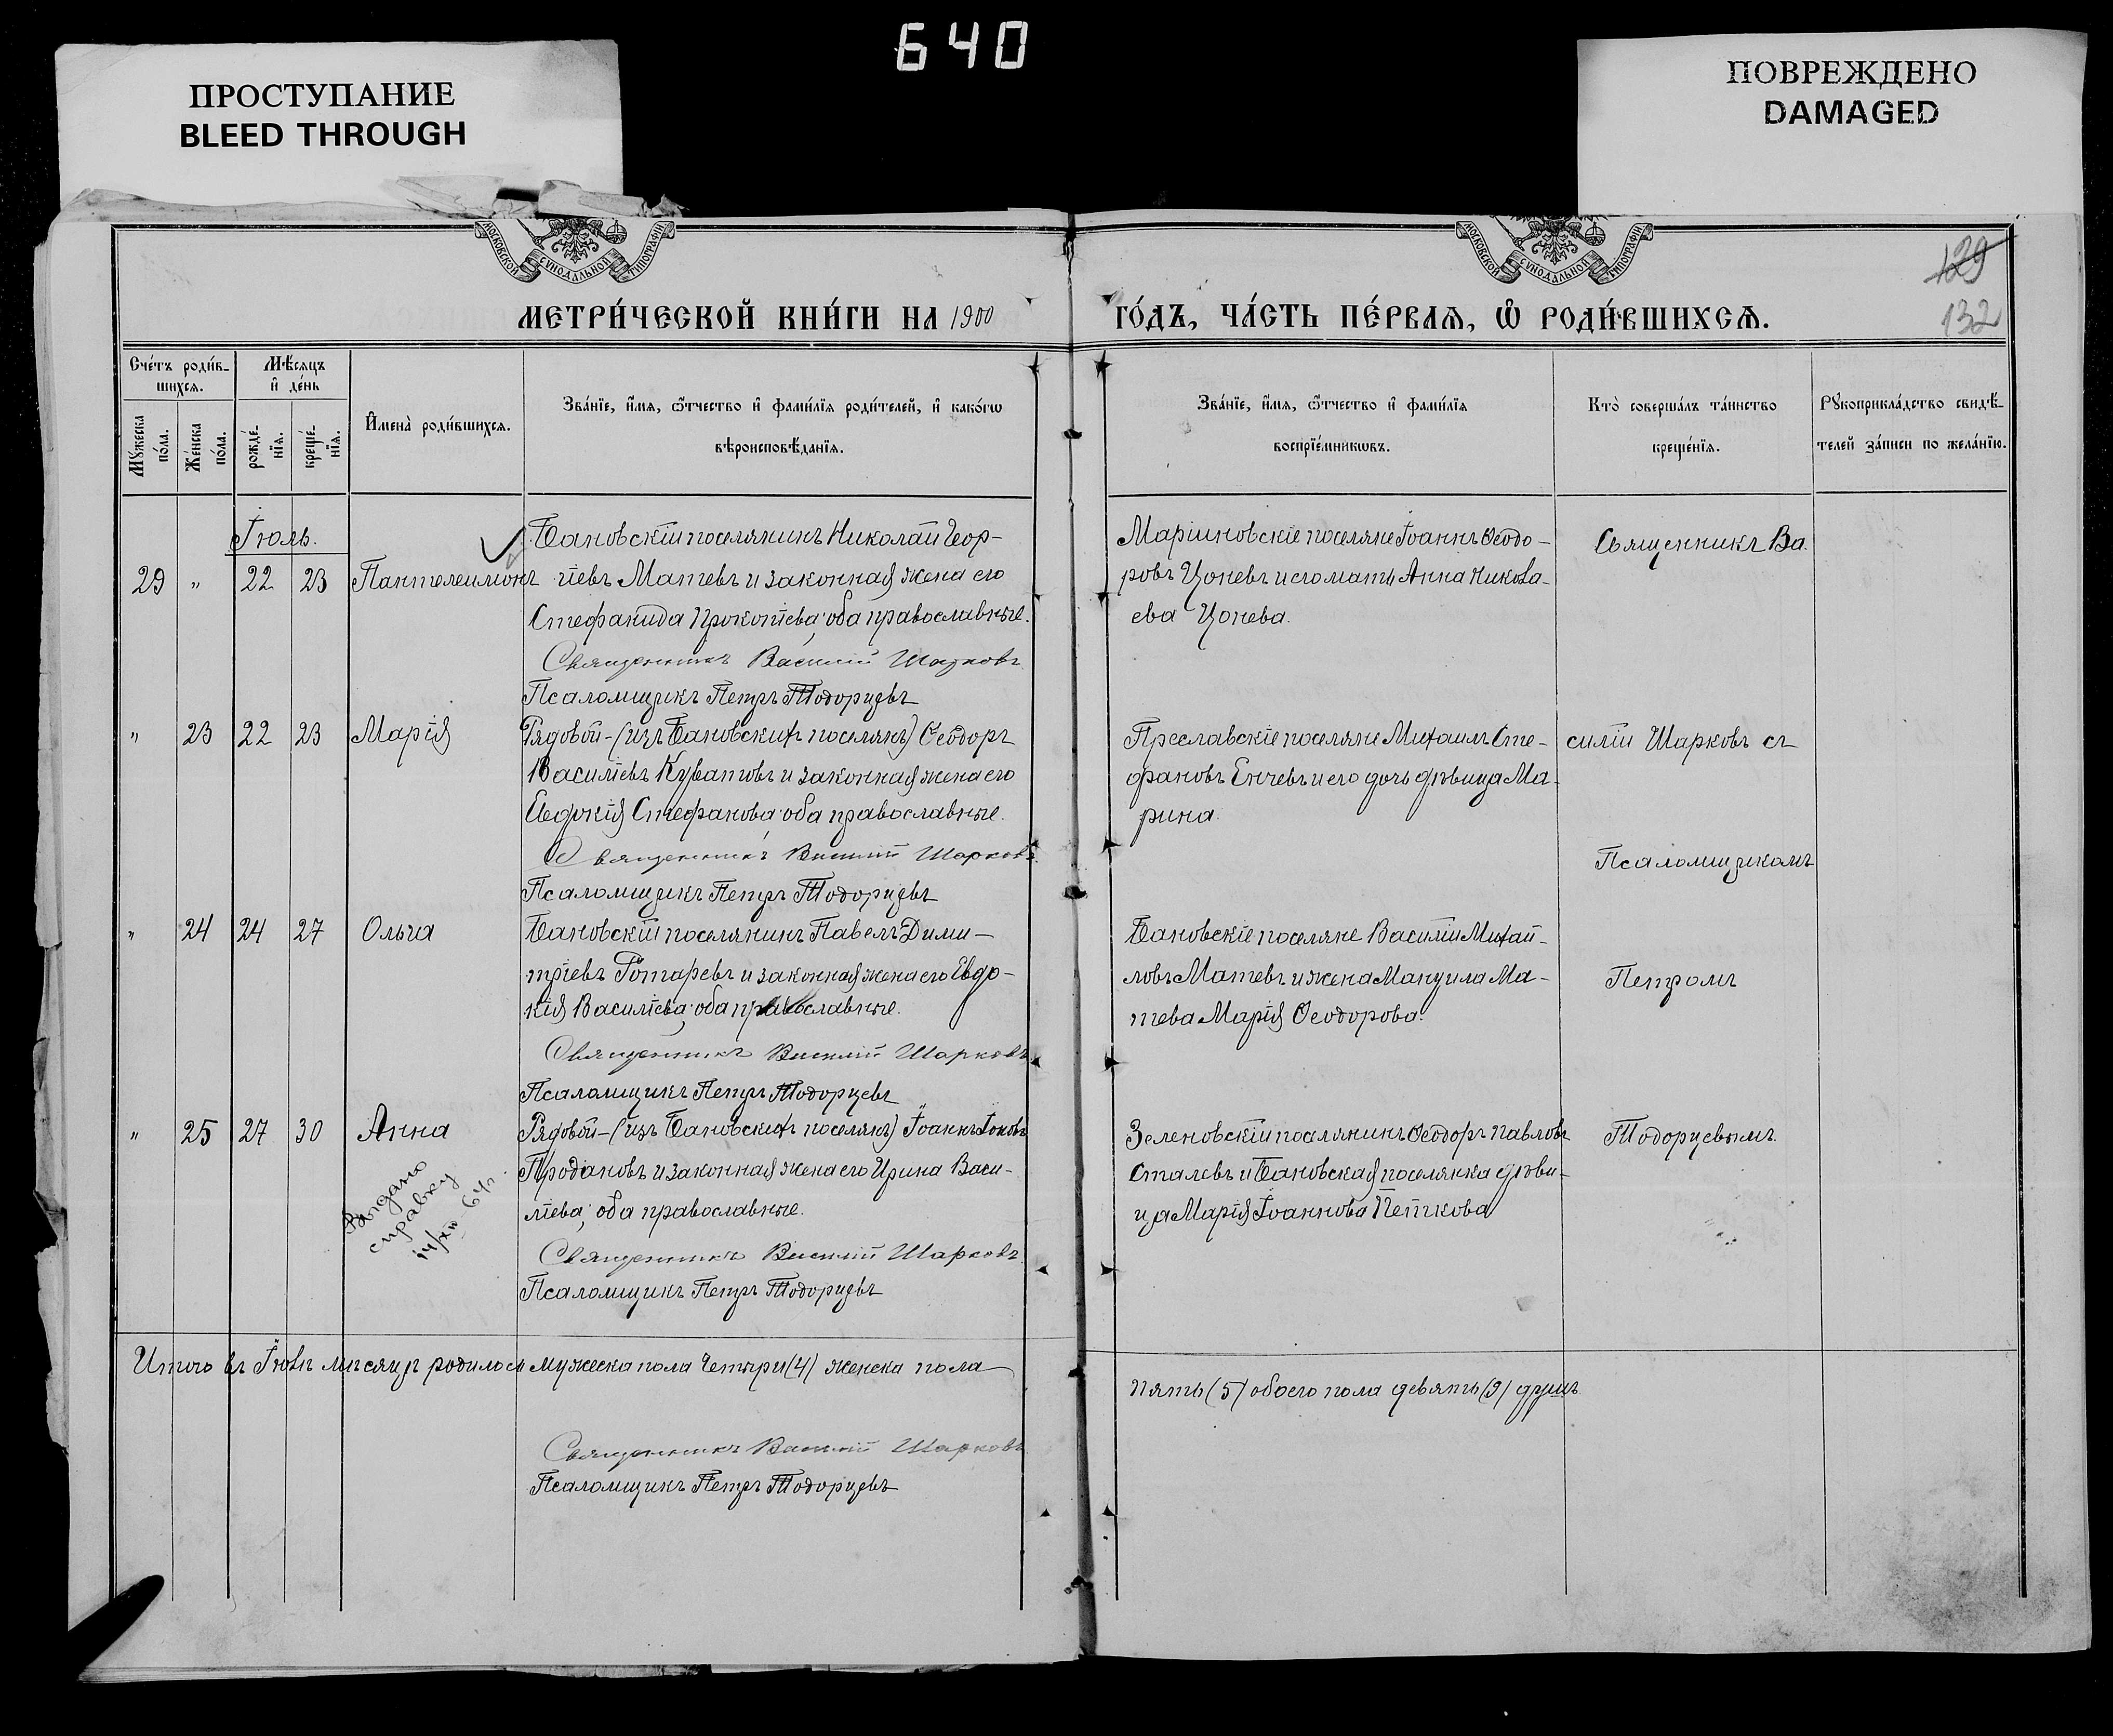 640
ПРОСТУПАНИЕ
BLEED THROUGH
ПОВРЕЖДЕНО
DAMAGED
МОСКОВСКОЙ СѴНОДАЛЬНОЙ ТИПОГРАФІИ
МОСКОВСКОЙ СѴНОДАЛЬНОЙ ТИПОГРАФІИ
129
132
МЕТРИ́ЧЕСКОЙ КНИ́ГИ НА 1900
ГО́ДЪ, ЧА́СТЬ ПЕ́РВАѦ, Ѡ҆ РОДИ́ВШИХСѦ.
Сче́тъ роди́в-
шихсѧ.
Мѣ́сяцъ
и҆ де́нь
Мꙋ́жеска
по́ла.
Же́нска
по́ла.
рожде́-
нїѧ.
креще́-
нїѧ.
И҆мена̀ роди́вшихсѧ.
Зва́нїе, и҆́мѧ, ѻ҆́тчество и҆ фами́лїѧ роди́телей, и҆ како́гѡ
вѣроисповѣ́данїѧ.
Зва́нїе, и҆́мѧ, ѻ҆́тчество и҆ фами́лїѧ
воспрїе́мникѡвъ.
Кто̀ соверша́лъ та́инство
креще́нїѧ.
Рꙋкоприкла́дство свидѣ́-
телей за́писи по жела́нїю.
Іюль.
29 " 22 23 Пантелеимонъ
Бановскій поселянинъ Николай Геор-
гіевъ Матевъ и законная жена его
Стефанида Прокопіева; оба православные.
Священникъ Василій Шарковъ
Псаломщикъ Петръ Тодорцевъ
Маріиновскіе поселяне Іоаннъ Ѳеодо-
ровъ Цоневъ и его мать Анна Никола-
ева Цонева.
Священникъ Ва
" 23 22 23 Марія
Рядовой-(изъ Бановскихъ поселянъ) Ѳеодоръ
Василіевъ Куватовъ и законная жена его
Евдокія Стефанова; оба православные.
Священникъ Василій Шарковъ
Псаломщикъ Петръ Тодорцевъ
Преславскіе поселяне Михаилъ Сте-
фановъ Енчевъ и его дочь дѣвица Ма-
рина.
силій Шарковъ съ
Псаломщикомъ
" 24 24 27 Ольга
Бановскій поселянинъ Павелъ Дими-
тріевъ Ротаревъ и законная жена его Евдо-
кія Василіева; оба православные.
Священникъ Василій Шарковъ
Псаломщикъ Петръ Тодорцевъ
Бановскіе поселяне Василій Михай-
ловъ Матевъ и жена Мануила Ма-
тева Марія Ѳеодорова.
Петромъ
" 25 27 30 Анна
Выдано
справку
14/XII 64г.
Рядовой-(изъ Бановскихъ поселянъ) Іоаннъ Іоновъ
Продановъ и законная жена его Ирина Васи-
ліева; оба православные.
Священникъ Василій Шарковъ
Псаломщикъ Петръ Тодорцевъ
Зеленовскій поселянинъ Ѳеодоръ Павловъ
Сталевъ и Бановская поселянка дѣви-
ца Марія Іоаннова Петкова
Тодорцевымъ.
Итого въ Іюлѣ мѣсяцѣ родилось мужеска пола четыри (4) женска пола
пять (5) обоего пола девять (9) душъ
Священникъ Василій Шарковъ
Псаломщикъ Петръ Тодорцевъ